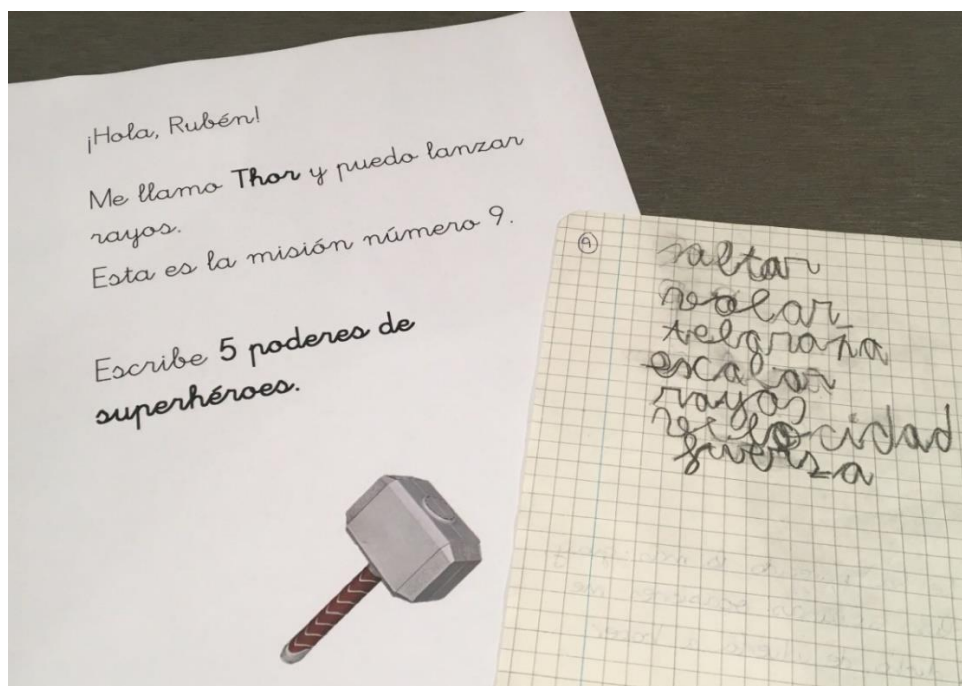 ¡Hola, Rubén!
Me llamo Thor y puedo lanzar
rayos.
Esta es la misión número 9.
Escribe 5 poderes de
superhéroes.
9
saltar
volar
telgraña
escalar
rayos
velocidad
fuerza